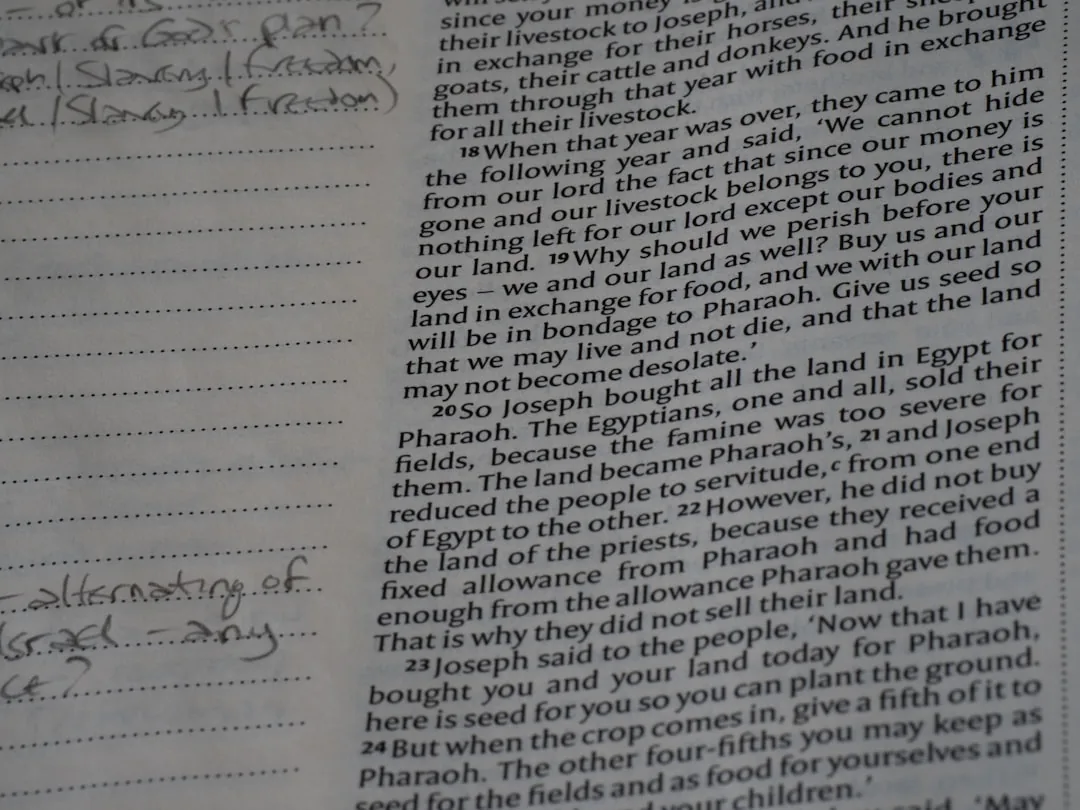 part of God's plan?
/ Slavery / freedom,
/ Slavery / freedom)
- alternating of
Israel - any
?
since your money
their livestock to Joseph, and
in exchange for their horses, their
goats, their cattle and donkeys. And he brought
them through that year with food in exchange
for all their livestock.
18 When that year was over, they came to him
the following year and said, ‘We cannot hide
from our lord the fact that since our money is
gone and our livestock belongs to you, there is
nothing left for our lord except our bodies and
our land. 19 Why should we perish before your
eyes – we and our land as well? Buy us and our
land in exchange for food, and we with our land
will be in bondage to Pharaoh. Give us seed so
that we may live and not die, and that the land
may not become desolate.’
20 So Joseph bought all the land in Egypt for
Pharaoh. The Egyptians, one and all, sold their
fields, because the famine was too severe for
them. The land became Pharaoh’s, 21 and Joseph
reduced the people to servitude,c from one end
of Egypt to the other. 22 However, he did not buy
the land of the priests, because they received a
fixed allowance from Pharaoh and had food
enough from the allowance Pharaoh gave them.
That is why they did not sell their land.
23 Joseph said to the people, ‘Now that I have
bought you and your land today for Pharaoh,
here is seed for you so you can plant the ground.
24 But when the crop comes in, give a fifth of it to
Pharaoh. The other four-fifths you may keep as
seed for the fields and as food for yourselves and
your children.’
said. ‘May